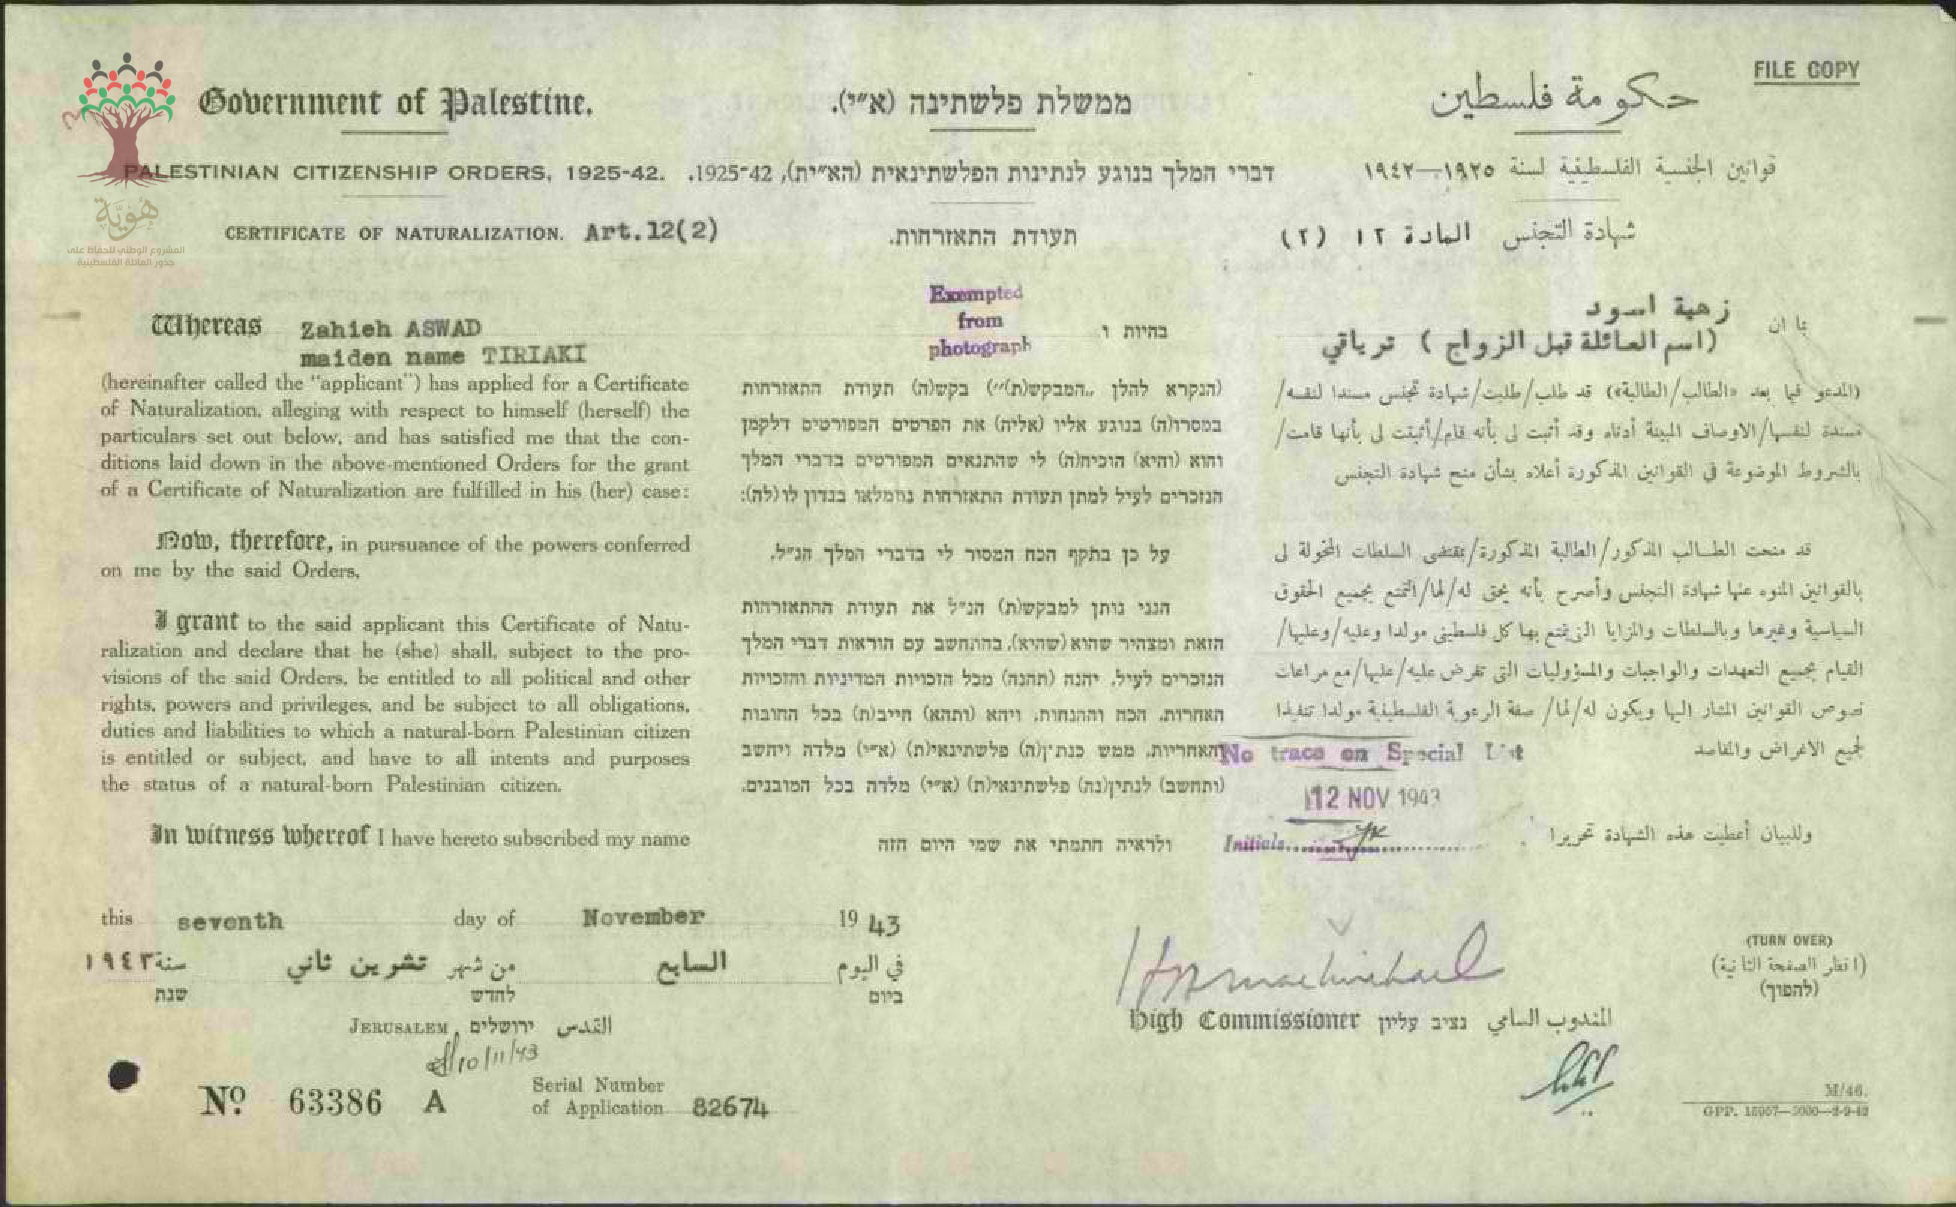 FILE COPY
Government of Palestine.
ממשלת פלשתינה (א״י).
حكومة فلسطين
PALESTINIAN CITIZENSHIP ORDERS, 1925-42.
דברי המלך בנוגע לנתינות הפלשתינאית (הא״ית), 1925-42.
قوانين الجنسية الفلسطينية لسنة ١٩٢٥—١٩٤٢
هوية
المشروع الوطني للحفاظ على
جذور العائلة الفلسطينية
CERTIFICATE OF NATURALIZATION. Art.12(2)
תעודת התאזרחות.
شهادة التجنس المادة ١٢ (٢)
Exempted
from
photograph
Whereas Zahieh ASWAD
maiden name TIRIAKI
(hereinafter called the "applicant") has applied for a Certificate
of Naturalization, alleging with respect to himself (herself) the
particulars set out below, and has satisfied me that the con-
ditions laid down in the above-mentioned Orders for the grant
of a Certificate of Naturalization are fulfilled in his (her) case:
Now, therefore, in pursuance of the powers conferred
on me by the said Orders,
I grant to the said applicant this Certificate of Natu-
ralization and declare that he (she) shall, subject to the pro-
visions of the said Orders, be entitled to all political and other
rights, powers and privileges, and be subject to all obligations,
duties and liabilities to which a natural-born Palestinian citizen
is entitled or subject, and have to all intents and purposes
the status of a natural-born Palestinian citizen.
In witness whereof I have hereto subscribed my name
בהיות ו
(הנקרא להלן „המבקש(ת)״) בקש(ה) תעודת התאזרחות
במסרו(ה) בנוגע אליו (אליה) את הפרטים המפורטים דלקמן
והוא (והיא) הוכיח(ה) לי שהתנאים המפורטים בדברי המלך
הנזכרים לעיל למתן תעודת התאזרחות נתמלאו בנדון לו(לה):
על כן בתקף הכח המסור לי בדברי המלך הנ״ל,
הנני נותן למבקש(ת) הנ״ל את תעודת ההתאזרחות
הזאת ומצהיר שהוא (שהיא), בהתחשב עם הוראות דברי המלך
הנזכרים לעיל, יהנה (תהנה) מכל הזכויות המדיניות והזכויות
האחרות, הכח וההנחות, ויהא (ותהא) חייב(ת) בכל החובות
והאחריות, ממש כנתין(ה) פלשתינאי(ת) (א״י) מלדה ויחשב
(ותחשב) לנתין(נה) פלשתינאי(ת) (א״י) מלדה בכל המובנים.
ולראיה חתמתי את שמי היום הזה
بما ان زهية اسود
(اسم العائلة قبل الزواج) ترياقي
(المدعو فيما بعد «الطالب/الطالبة») قد طلب/طلبت/شهادة تجنس مسندا لنفسه/
مسندة لنفسها/الاوصاف المبينة أدناه وقد أثبت لى بأنه قام/أثبتت لى بأنها قامت/
بالشروط الموضوعة فى القوانين المذكورة أعلاه بشأن منح شهادة التجنس
قد منحت الطالب المذكور/الطالبة المذكورة/بمقتضى السلطات المخولة لى
بالقوانين المنوه عنها شهادة التجنس وأصرح بأنه يحق له/لها/التمتع بجميع الحقوق
السياسية وغيرها وبالسلطات والمزايا التى يتمتع بها كل فلسطينى مولدا وعليه/وعليها/
القيام بجميع التعهدات والواجبات والمسؤوليات التى تفرض عليه/عليها/مع مراعات
نصوص القوانين المشار اليها ويكون له/لها/ صفة الرعوية الفلسطينية مولدا تنفيذا
لجميع الاغراض والمقاصد
وللبيان أعطيت هذه الشهادة تحريرا
No trace on Special List
12 NOV 1943
Initials
this seventh day of November 1943
في اليوم السابع من شهر تشرين ثاني سنة ١٩٤٣
ביום לחדש שנת
JERUSALEM, ירושלים القدس
10/11/43
High Commissioner נציב עליון المندوب السامي
(TURN OVER)
(انظر الصفحة الثانية)
(להפוך)
No. 63386 A
Serial Number
of Application 82674
M/46.
GPP. 15057—5000—2-9-42